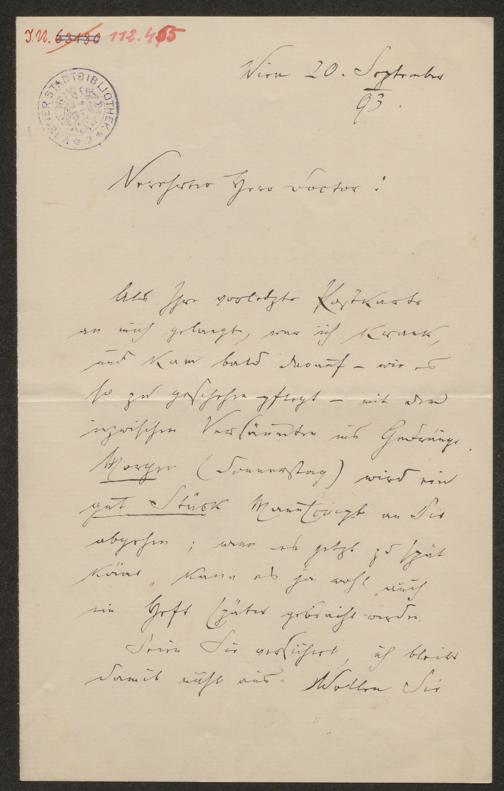 J.N. 63130 112.455
WIENER STADTBIBLIOTHEK
Wien 20. September
93.
Verehrter Herr Doctor!
Als Ihre vorletzte Postkarte
an mich gelangt, war ich krank,
und kam bald darauf – wie es
so zu geschehen pflegt – mit dem
inzwischen Versäumten ins Gedränge.
Morgen (Donnerstag) wird ein
gut Stück Manuscript an Sie
abgehen; wenn es jetzt zu spät
käme, kann es ja wohl auch
im Heft später gebracht werden.
Seien Sie versichert, ich bleibe
damit nicht aus. Wollen Sie